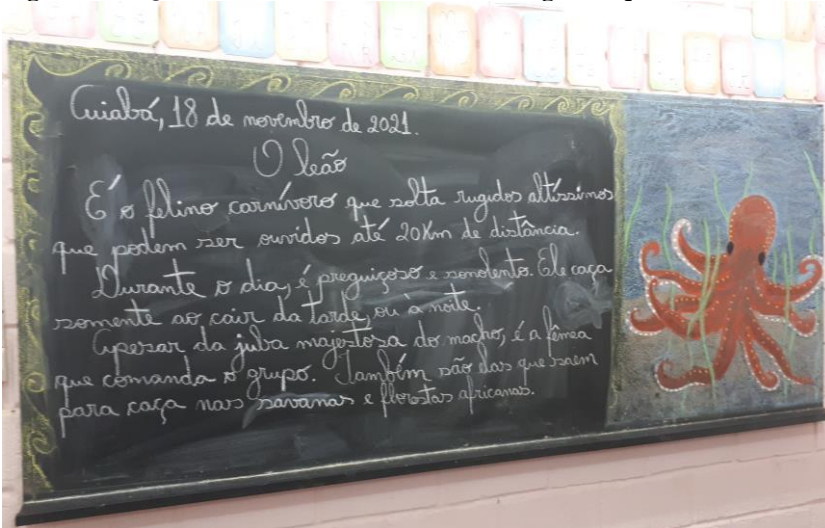 Cuiabá, 18 de novembro de 2021.
O leão
É o felino carnívoro que solta rugidos altíssimos
que podem ser ouvidos até 20Km de distância.
Durante o dia, é preguiçoso e sonolento. Ele caça
somente ao cair da tarde, ou à noite.
Apesar da juba majestosa do macho, é a fêmea
que comanda o grupo. Também são elas que saem
para caça nas savanas e florestas africanas.